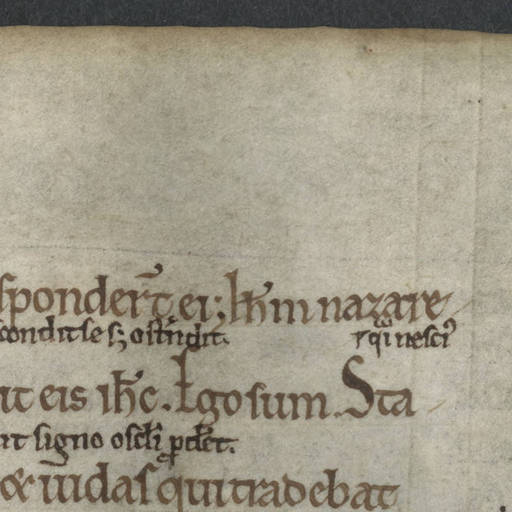 sponder̅t ei; Ih̅m nazare
condit se sꝫ oste̅ndit. r qͣi nesciꝰ
it eis ih̅c. Ego sum. Sta
it signo oscl̅i ꝓdet.
& iu̅das qui tradebat